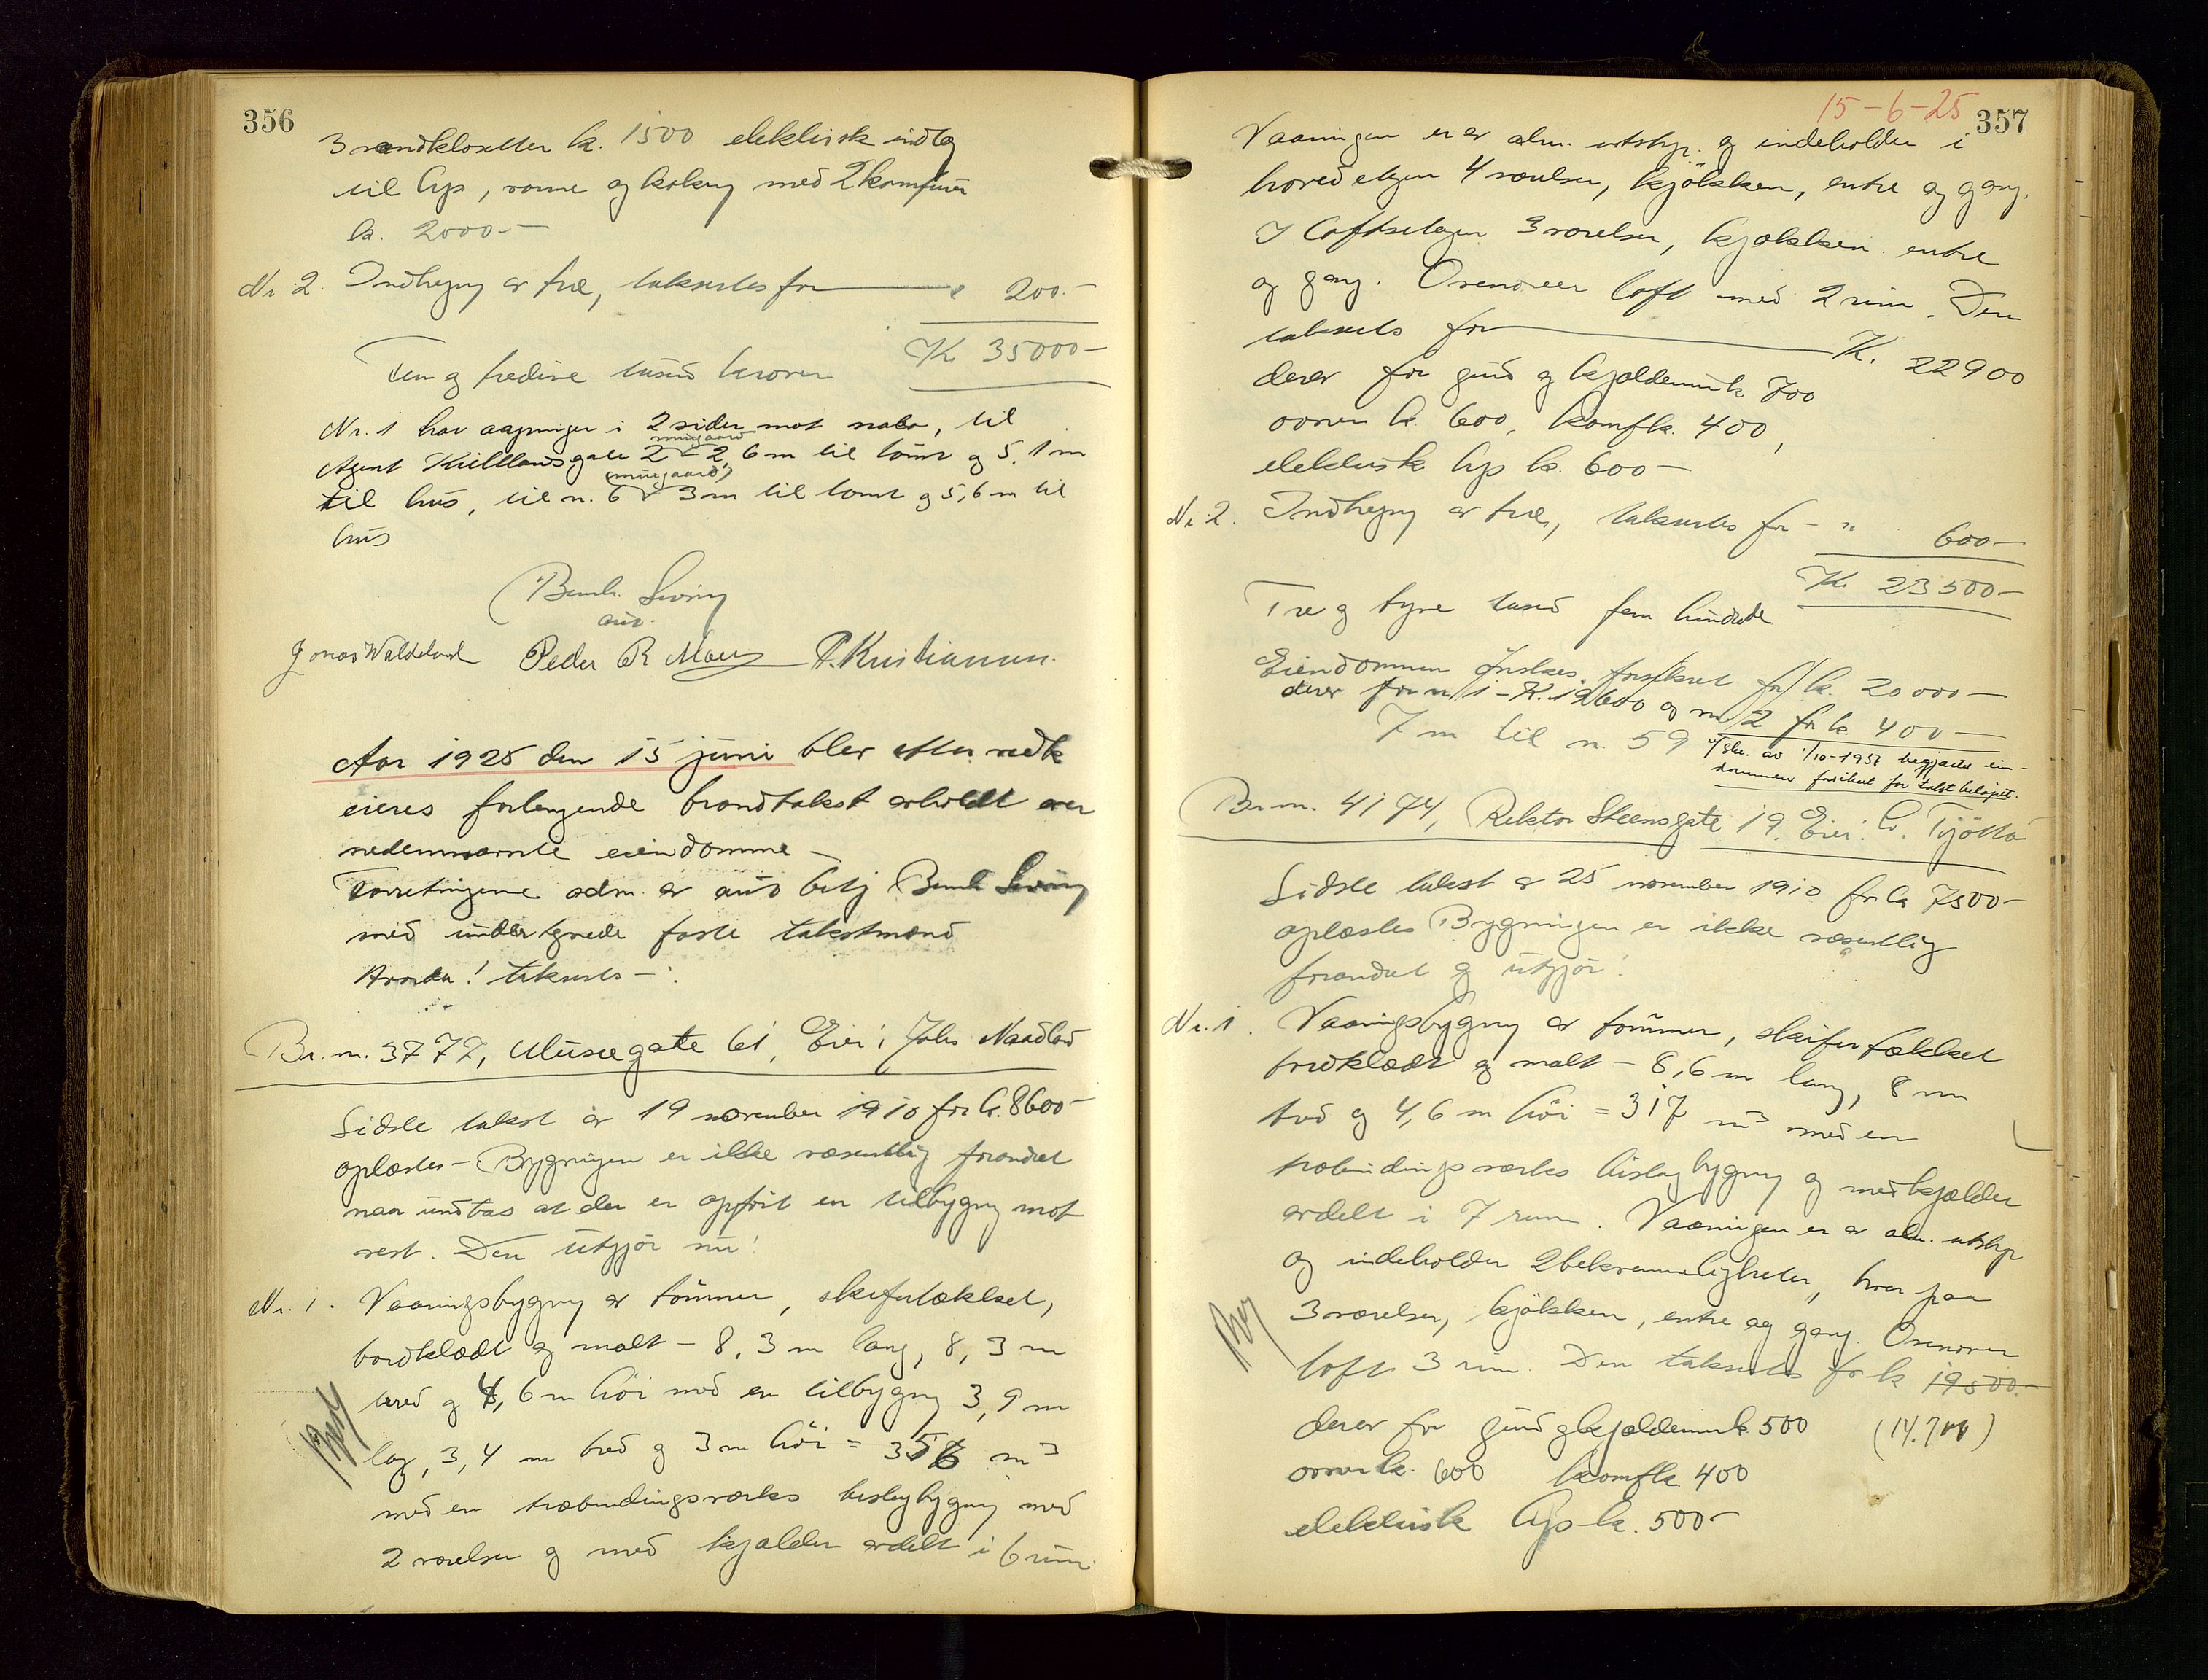 356
3 vandklosetter kr. 1500 elektrisk indlæg
til lys, varme og kokning med 2 komfurer
kr. 2000.-
Nr 2. Indhegning av træ, taksertes for " 200.-
Kr 35000-
Fem og tredive tusind kroner
Nr. 1 har aapninger i 2 sider mot nabo, til
Agent Kiellands gate 2 (murgaard) 2,6 m til tomt og 5,1 m
til hus, til nr. 6 (murgaard) 3 m til tomt og 5,6 m til
hus
Bernh. Sværing
aut.
Jonas Waldeland Peder R Moen P. Kristiansen.
Aar 1925 den 15 juni blev efter vedk
eieres forlangende brandtakst avholdt over
nedennævnte eiendomme -
Forretningene adm. av aut bestyr Bernh Sværing
med undertegnede faste takstmænd
Hvorda! takserts -:
Br. nr. 3777, Museegate 61, Eier: Johs Naadland
Sidste takst av 19 november 1910 for kr. 8600-
oplæstes - Bygningen er ikke væsentlig forandret
naar undtas at der er opført en tilbygning mot
vest. Den utgjør nu:
Nr. 1. Vaaningsbygning av tømmer, skifertækket,
bordklædt og malt - 8,3 m lang, 8,3 m
bred og 4,6 m høi med en tilbygning 3,9 m
lang, 3,4 m bred og 3 m høi = 356 m3
med en træbindingsverks bislagbygning med
2 værelser og med kjælder avdelt i 6 rum.
15-6-25
357
Vaaningen er av alm. utstyr og indeholder i
hovedetagen 4 værelser, kjøkken, entre og gang.
I loftsetagen 3 værelser, kjøkken entre
og gang. Ovenover loft med 2 rum. Den
taksertes for Kr. 22900
derav for grund og kjældermur kr 700
ovner kr. 600, komf kr. 400,
elektrisk lys kr. 600-
Nr. 2. Indhegning av træ, taksertes for - " 600-
Kr 23500-
Tre og tyve tusind fem hundrede
Eiendommen ønskes forsikret for kr. 20000-
derav for nr 1 - Kr. 19600 og nr 2 for kr. 400-
7 m til nr. 59
Skr. av 1/10-1957 begjæres ein-
dommen forsikret for takst beløpet.
Br. nr. 4174, Rektor Steensgate 19. Eier: C. Tjøtta
Sidste takst av 25 november 1910 for kr 7500-
oplæstes Bygningen er ikke væsentlig
forandret og utgjør:
Nr. 1. Vaaningsbygning av tømmer, skifertækket
bordklædt og malt - 8,6 m lang, 8 m
bred og 4,6 m høi = 317 m3 med en
træbindingsverks bislagbygning og med kjælder
avdelt i 7 rum. Vaaningen er av alm. utstyr
og indeholder 2 bekvemmeligheter, hver paa
3 værelser, kjøkken, entre og gang. Ovenover
loft 3 rum. Den taksertes for kr 19500.-
derav for grund og kjældermur kr. 500 (14.700)
ovner kr. 600 komf kr 400
elektrisk lys kr. 500-